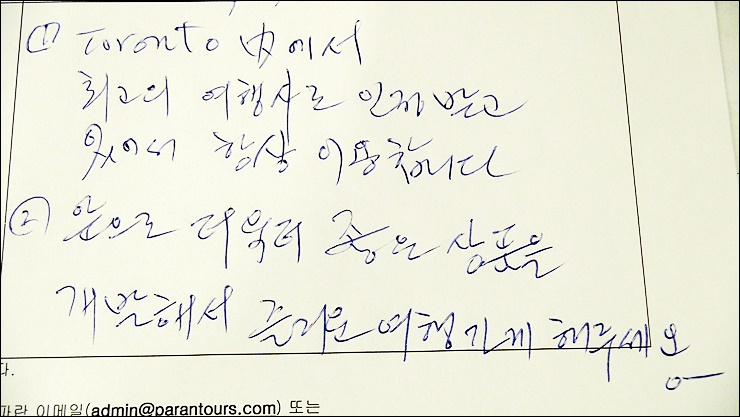 (1) Toronto 內에서
최고의 여행사로 인정받고
있어서 항상 이용합니다
(2) 앞으로 더욱더 좋은 상품을
개발해서 즐거운 여행기게 해주세요
다.
파란 이메일(admin@parantours.com) 또는